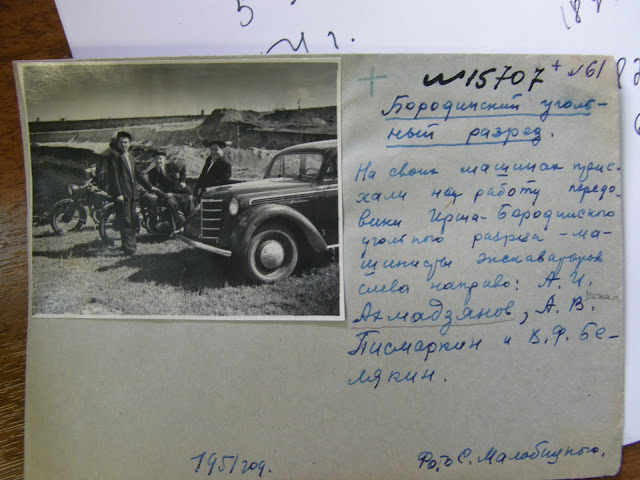 5
г.
187
№15707 + №61
Бородинский уголь-
ный разрез.
На своих машинах прие-
хали на работу передо-
вики Ирша-Бородинского
угольного разреза - ма-
шинисты экскаваторов
слева направо: А. И.
Ахмадзянов, А. В.
Писмаркин и В. Ф. Бе-
лякин.
1951 год.
Фото С. Малобицкого.